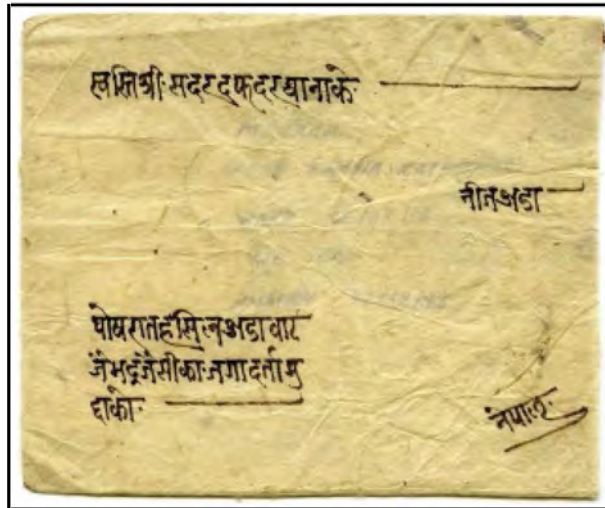 स्वस्तिश्री सदरदफदरषानाके
नीनअडा
पोषरातहसिलअडावाट
जैभद्रजैसीका जगादर्तामु
द्दाको
नेपाल